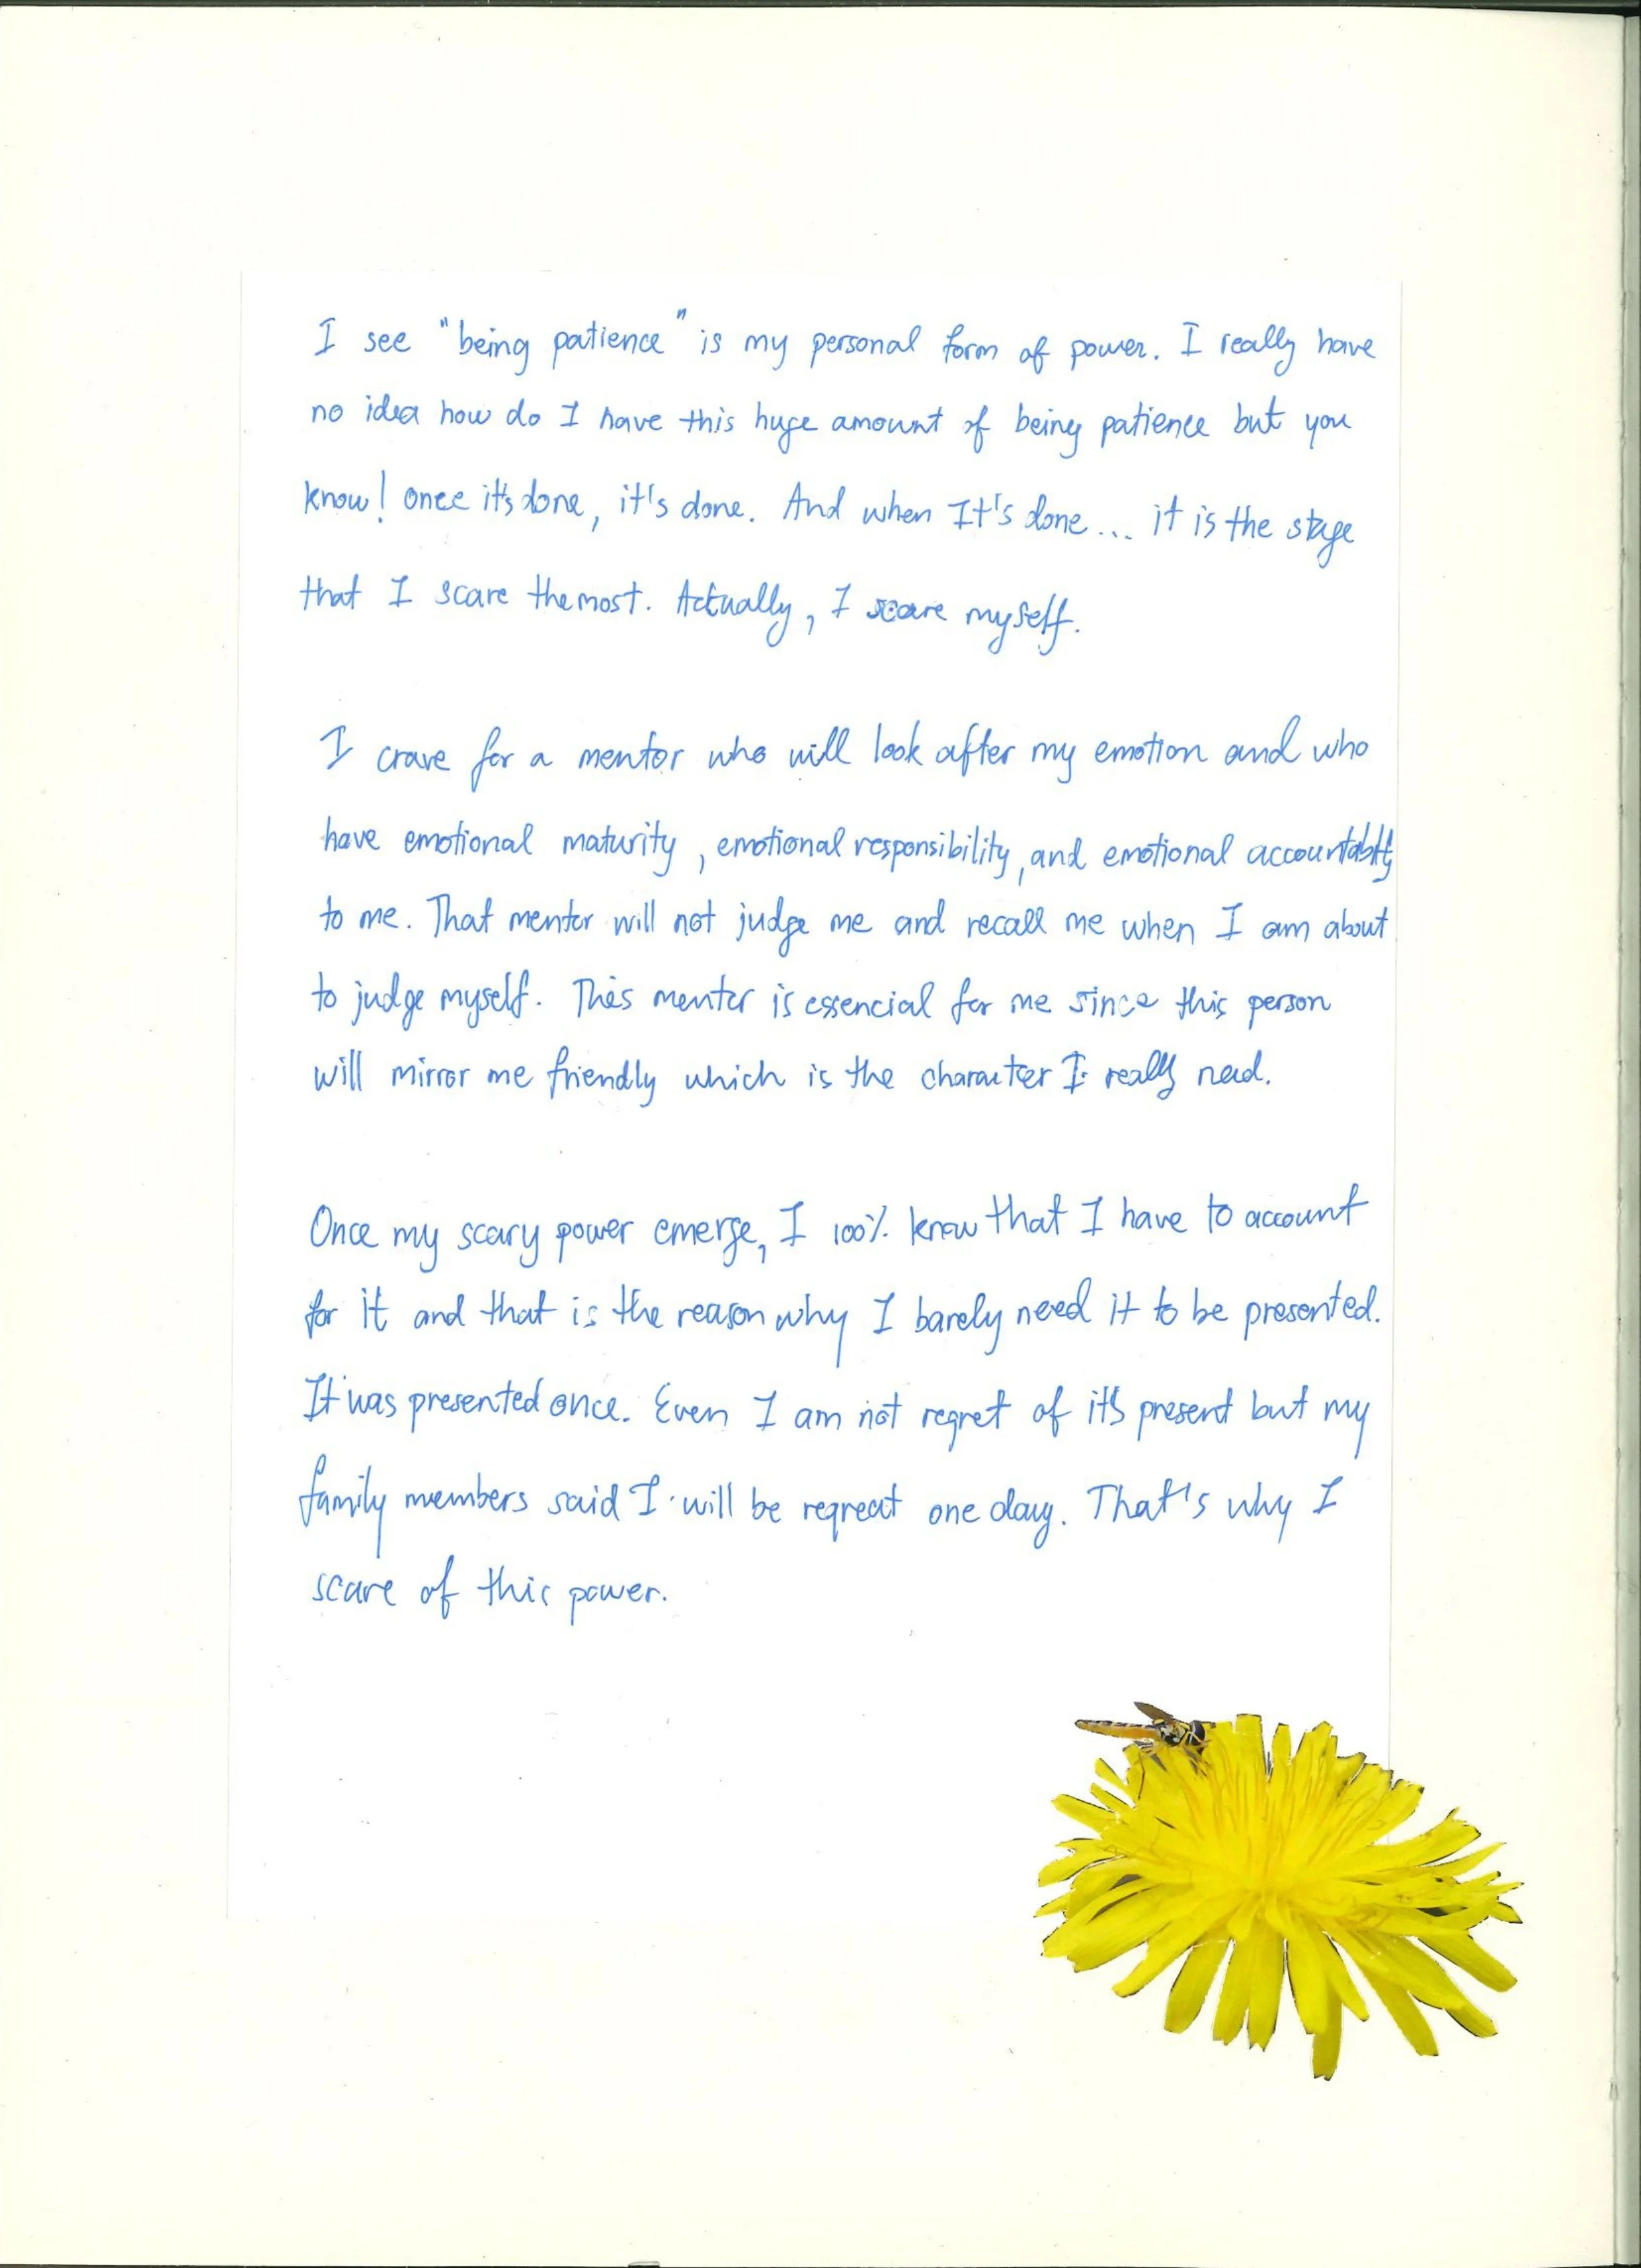 I see "being patience" is my personal form of power. I really have
no idea how do I have this huge amount of being patience but you
know! once it's done, it's done. And when It's done... it is the stage
that I scare the most. Actually, I scare myself.
I crave for a mentor who will look after my emotion and who
have emotional maturity, emotional responsibility, and emotional accountability
to me. That mentor will not judge me and recall me when I am about
to judge myself. This mentor is essencial for me since this person
will mirror me friendly which is the character I really need.
Once my scary power emerge, I 100% know that I have to account
for it and that is the reason why I barely need it to be presented.
It was presented once. Even I am not regret of it's present but my
family members said I will be regreat one day. That's why I
scare of this power.